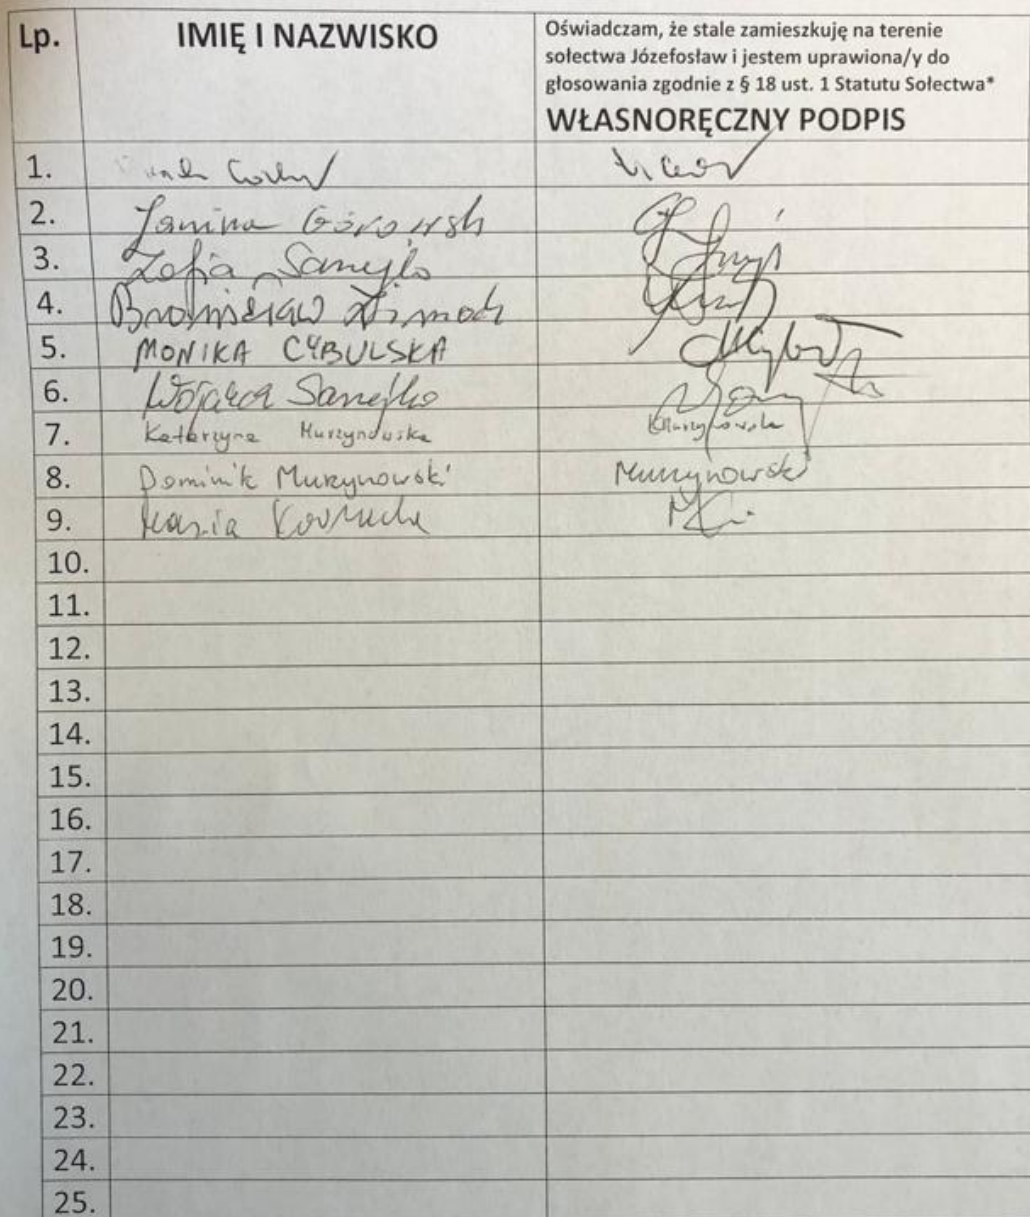 Lp. IMIĘ I NAZWISKO Oświadczam, że stale zamieszkuję na terenie
sołectwa Józefosław i jestem uprawiona/y do
głosowania zgodnie z § 18 ust. 1 Statutu Sołectwa*
WŁASNORĘCZNY PODPIS
1.
2. Janina
3. Zofia Sanejko
4. Bronisław
5. MONIKA CYBULSKA
6. Wojciech Sanejko
7. Katarzyna Murzynowska
8. Dominik Murzynowski Murzynowski
9. Maria
10.
11.
12.
13.
14.
15.
16.
17.
18.
19.
20.
21.
22.
23.
24.
25.